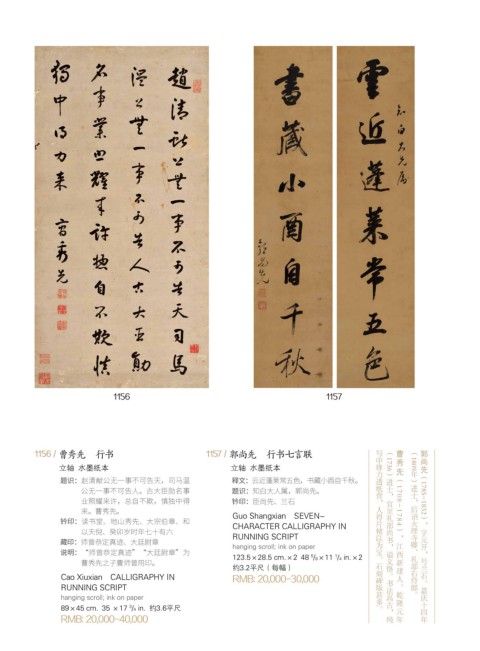 趙清獻公無一事不可告天司馬
溫公無一事不可告人古大臣勛
名事業照耀來許總自不欺慎
獨中得力來 曹秀先
雲近蓬萊常五色
知白大兄屬
書藏小酉自千秋
郭尚先
1156
1157
1156 / 曹秀先 行书
立轴 水墨纸本
题识：赵清献公无一事不可告天，司马温
公无一事不可告人。古大臣勋名事
业照耀来许，总自不欺，慎独中得
来。曹秀先。
钤印：读书堂、地山秀先、大宗伯章、和
以天倪、癸卯岁时年七十有六
藏印：师曾恭定真迹、大廷尉章
说明：“师曾恭定真迹”“大廷尉章”为
曹秀先之子曹师曾用印。
Cao Xiuxian CALLIGRAPHY IN
RUNNING SCRIPT
hanging scroll; ink on paper
89 x 45 cm. 35 x 17 3/4 in. 约3.6平尺
RMB: 20,000-40,000
1157 / 郭尚先 行书七言联
立轴 水墨纸本
释文：云近蓬莱常五色，书藏小酉自千秋。
题识：知白大人属，郭尚先。
钤印：臣尚先、兰石
Guo Shangxian SEVEN-
CHARACTER CALLIGRAPHY IN
RUNNING SCRIPT
hanging scroll; ink on paper
123.5 x 28.5 cm. x 2 48 5/8 x 11 1/4 in. x 2
约3.2平尺（每幅）
RMB: 20,000-30,000
郭尚先（1785～1832），字元开，号兰石，嘉庆十四年
（1809年）进士，后擢大理寺卿、礼部右侍郎。
曹秀先（1708～1784），江西新建人，乾隆元年
（1736）进士，官至礼部尚书，谥文恪。书法高古，纯